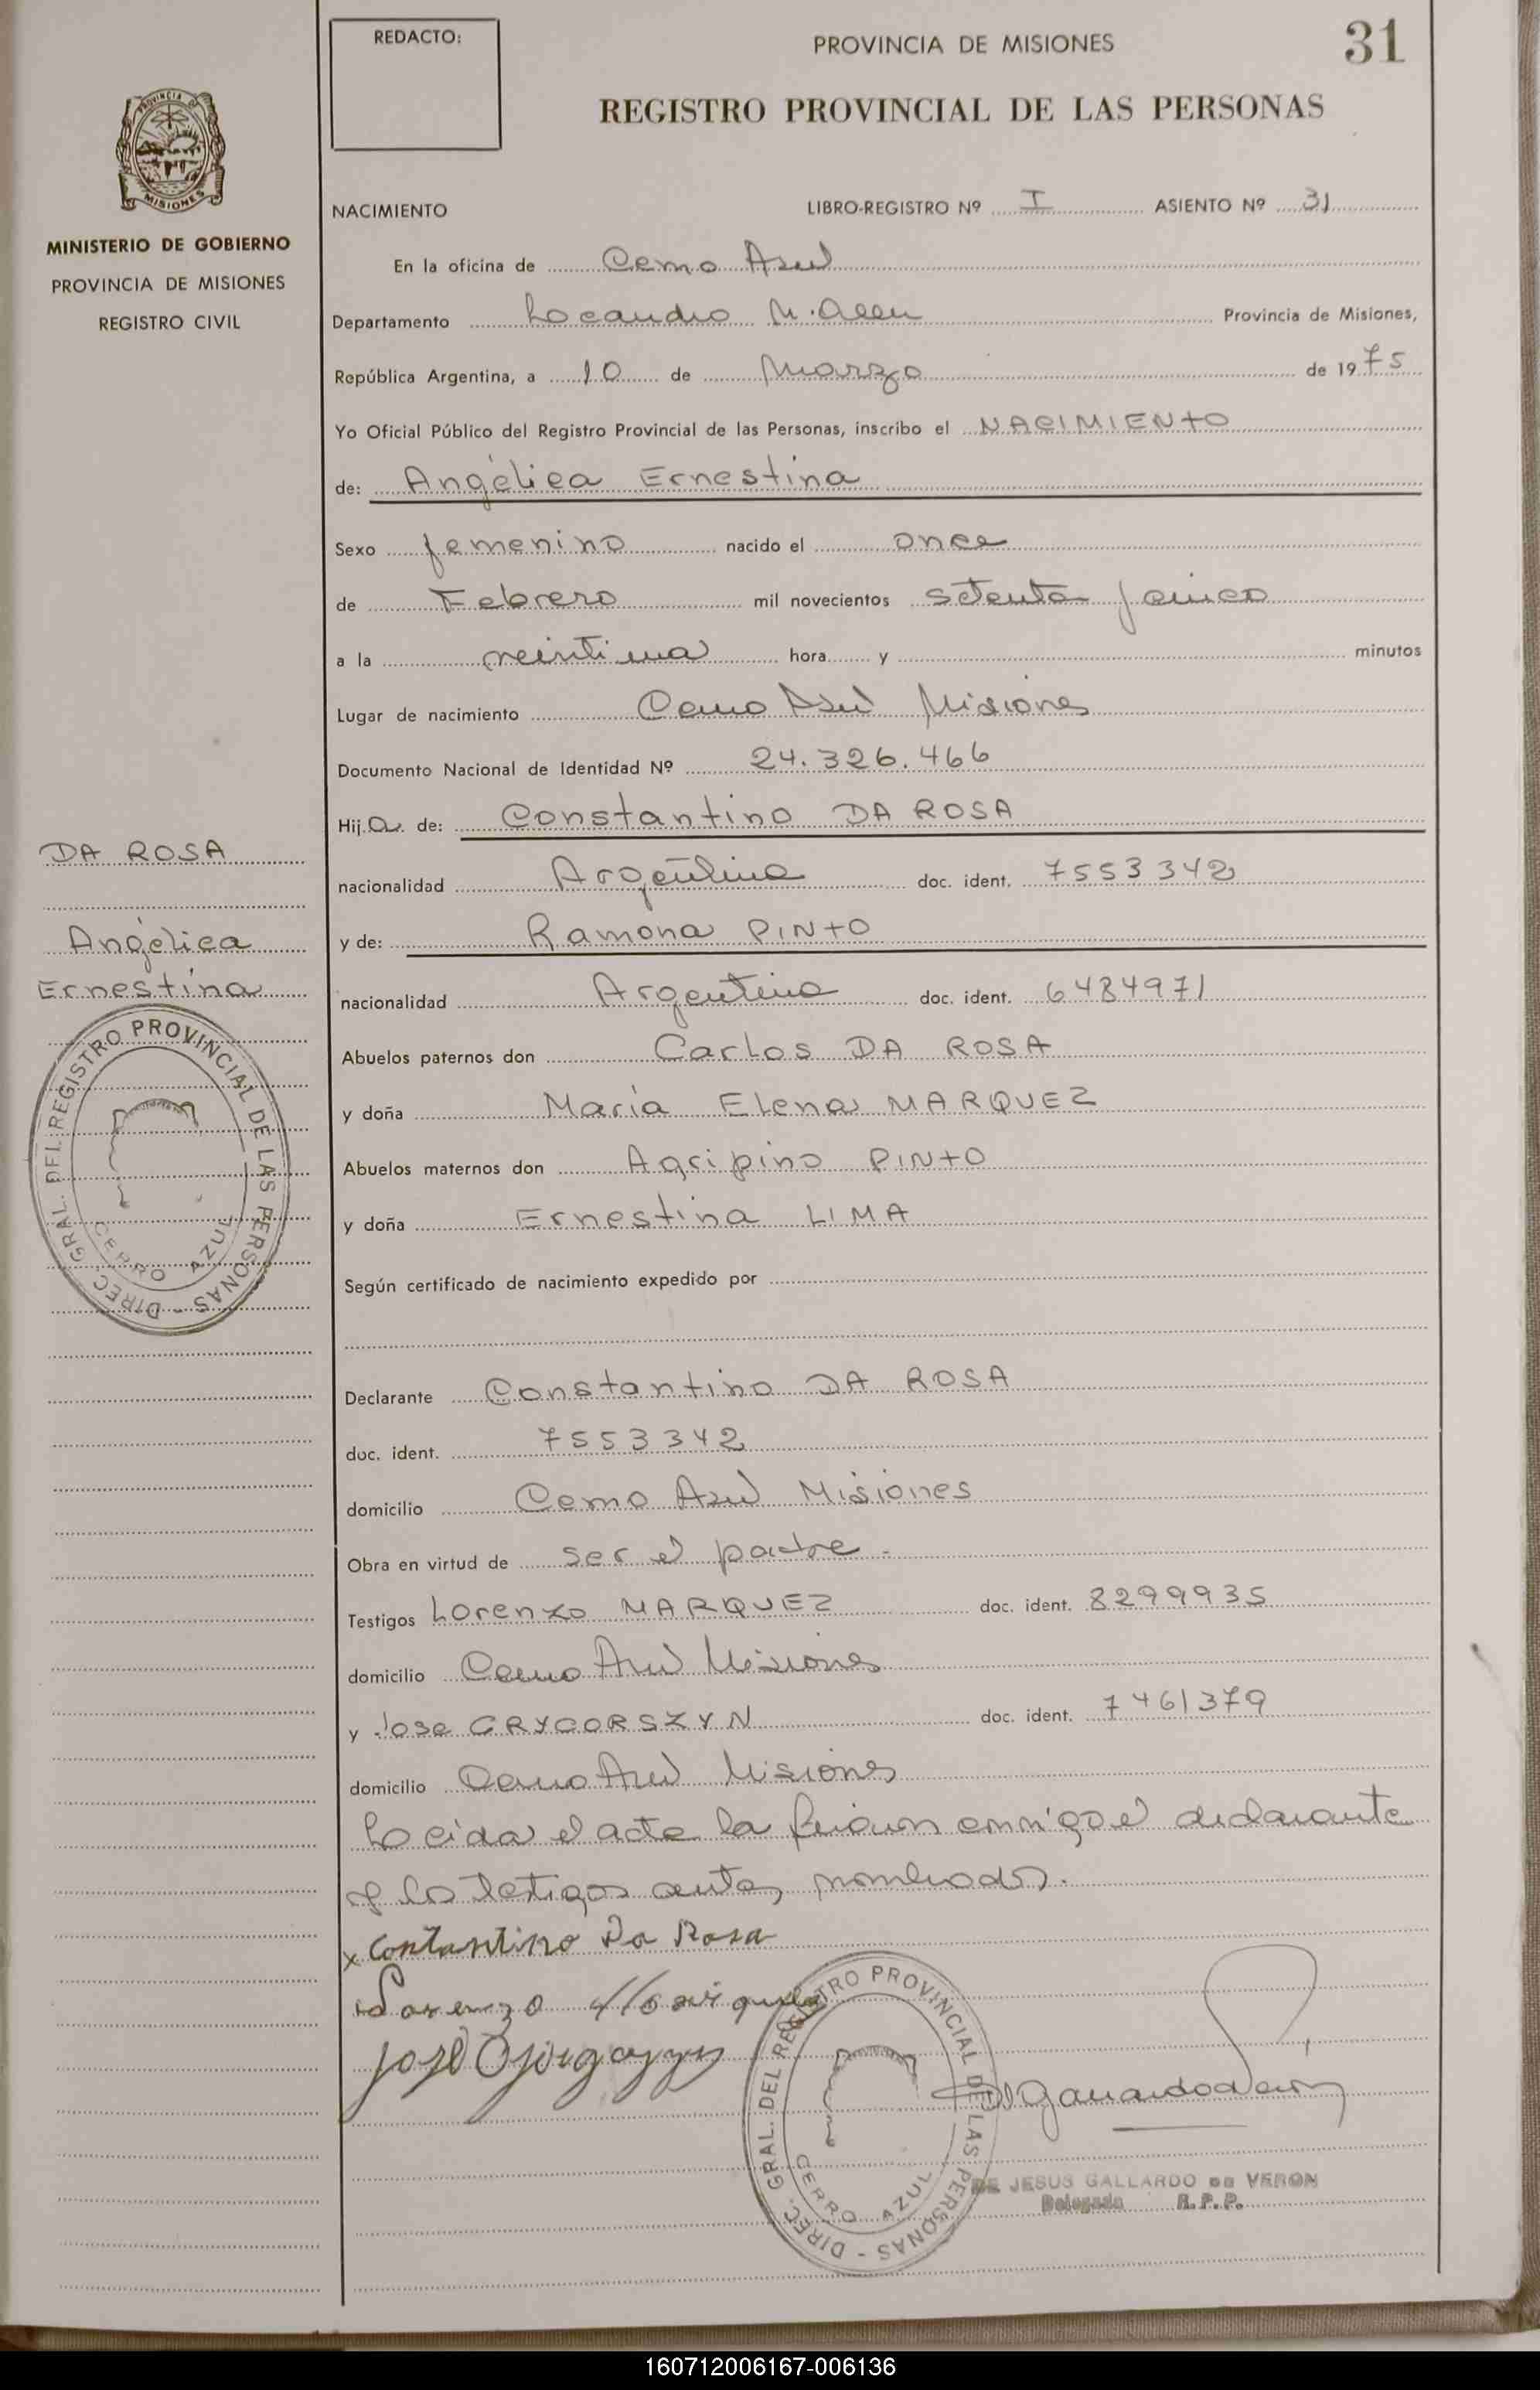 REDACTO:
PROVINCIA DE MISIONES
31
REGISTRO PROVINCIAL DE LAS PERSONAS
PROVINCIA DE
MISIONES
MINISTERIO DE GOBIERNO
PROVINCIA DE MISIONES
REGISTRO CIVIL
NACIMIENTO LIBRO-REGISTRO Nº I ASIENTO Nº 31
En la oficina de Cerro Azul
Departamento Leandro N. Alem Provincia de Misiones,
República Argentina, a 10 de Marzo de 1975
Yo Oficial Público del Registro Provincial de las Personas, inscribo el NACIMIENTO
de: Angélica Ernestina
Sexo femenino nacido el once
de Febrero mil novecientos setenta y cinco
a la veintiuna hora y minutos
Lugar de nacimiento Cerro Azul Misiones
Documento Nacional de Identidad Nº 24.326.466
Hija de: Constantino DA ROSA
nacionalidad Argentina doc. ident. 7553342
y de: Ramona PINTO
nacionalidad Argentina doc. ident. 6484971
Abuelos paternos don Carlos DA ROSA
y doña María Elena MARQUEZ
Abuelos maternos don Agripino PINTO
y doña Ernestina LIMA
Según certificado de nacimiento expedido por
Declarante Constantino DA ROSA
doc. ident. 7553342
domicilio Cerro Azul Misiones
Obra en virtud de ser el padre.
Testigos Lorenzo MARQUEZ doc. ident. 8299935
domicilio Cerro Azul Misiones
y Jose GRYGORSZYN doc. ident. 7461379
domicilio Cerro Azul Misiones
Leida el acta la firman conmigo el declarante
y los testigos antes nombrados.
x Contantino Da Rosa
Lorenzo Marquez
José
DE JESUS GALLARDO DE VERON
Delegada R.P.P.
DIREC. GRAL. DEL REGISTRO PROVINCIAL DE LAS PERSONAS -
CERRO AZUL
DA ROSA
Angélica
Ernestina
DIREC. GRAL. DEL REGISTRO PROVINCIAL DE LAS PERSONAS -
CERRO AZUL
160712006167-006136